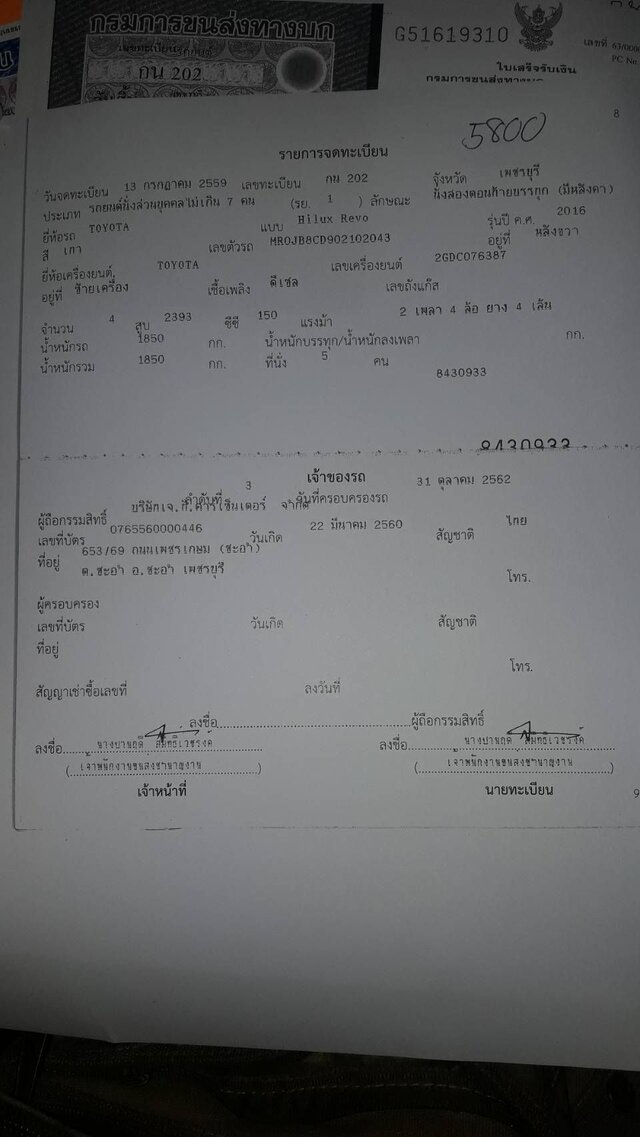 กรมการขนส่งทางบก
กน 202
G51619310
ใบเสร็จรับเงิน
กรมการขนส่งทางบก
เลขที่
PC No.
5800
8
รายการจดทะเบียน
วันจดทะเบียน 13 กรกฎาคม 2559 เลขทะเบียน กน 202 จังหวัด เพชรบุรี
ประเภท รถยนต์นั่งส่วนบุคคลไม่เกิน 7 คน (รย. 1 ) ลักษณะ นั่งสองตอนท้ายบรรทุก (มีหลังคา)
ยี่ห้อรถ TOYOTA แบบ Hilux Revo รุ่นปี ค.ศ. 2016
สี เทา เลขตัวรถ MR0JB8CD902102043 อยู่ที่ หลังขวา
ยี่ห้อเครื่องยนต์ TOYOTA เลขเครื่องยนต์ 2GDC076387
อยู่ที่ ซ้ายเครื่อง เชื้อเพลิง ดีเซล เลขถังแก๊ส
จำนวน 4 สูบ 2393 ซีซี 150 แรงม้า 2 เพลา 4 ล้อ ยาง 4 เส้น
น้ำหนักรถ 1850 กก. น้ำหนักบรรทุก/น้ำหนักลงเพลา กก.
น้ำหนักรวม 1850 กก. ที่นั่ง 5 คน
8430933
8430933
เจ้าของรถ
ลำดับที่ 3 วันที่ครอบครองรถ 31 ตุลาคม 2562
ผู้ถือกรรมสิทธิ์ บริษัทเจ.ที.คาร์เซ็นเตอร์ จำกัด
เลขที่บัตร 0765560000446 วันเกิด 22 มีนาคม 2560 สัญชาติ ไทย
ที่อยู่ 653/69 ถนนเพชรเกษม (ชะอำ)
ต.ชะอำ อ.ชะอำ เพชรบุรี
โทร.
ผู้ครอบครอง
เลขที่บัตร วันเกิด สัญชาติ
ที่อยู่
โทร.
สัญญาเช่าซื้อเลขที่ ลงวันที่
ลงชื่อ ผู้ถือกรรมสิทธิ์
ลงชื่อ ลงชื่อ
(เจ้าพนักงานขนส่งชำนาญงาน) (เจ้าพนักงานขนส่งชำนาญงาน)
เจ้าหน้าที่ นายทะเบียน
9